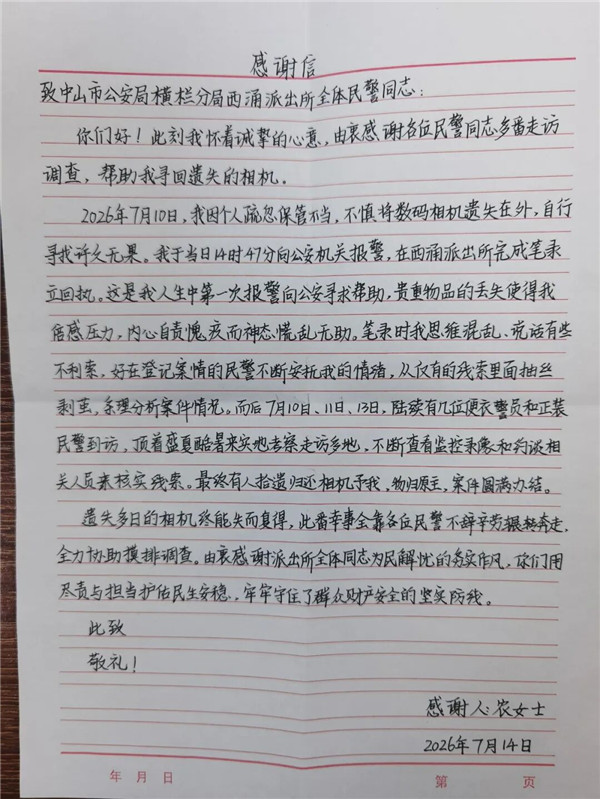 感谢信
致中山市公安局横栏分局西涌派出所全体民警同志：
你们好！此刻我怀着诚挚的心意，由衷感谢各位民警同志多番走访
调查，帮助我寻回遗失的相机。
2026年7月10日，我因个人疏忽保管不当，不慎将数码相机遗失在外，自行
寻找许久无果。我于当日14时47分向公安机关报警，在西涌派出所完成笔录
立回执。这是我人生中第一次报警向公安寻求帮助，贵重物品的丢失使得我
倍感压力，内心自责愧疚而神态慌乱无助。笔录时我思维混乱、说话有些
不利索，好在登记案情的民警不断安抚我的情绪，从仅有的线索里面抽丝
剥茧，条理分析案件情况。而后7月10日、11日、13日，陆续有几位便衣警员和正装
民警到访，顶着盛夏酷暑来实地考察走访多地，不断查看监控录像和约谈相
关人员来核实线索。最终有人拾遗归还相机予我，物归原主，案件圆满办结。
遗失多日的相机终能失而复得，此番幸事全靠各位民警不辞辛劳辗转奔走，
全力协助摸排调查。由衷感谢派出所全体同志为民解忧的务实作风，你们用
尽责与担当护佑民生安稳，牢牢守住了群众财产安全的坚实防线。
此致
敬礼！
感谢人：农女士
2026年7月14日
年 月 日 第 页